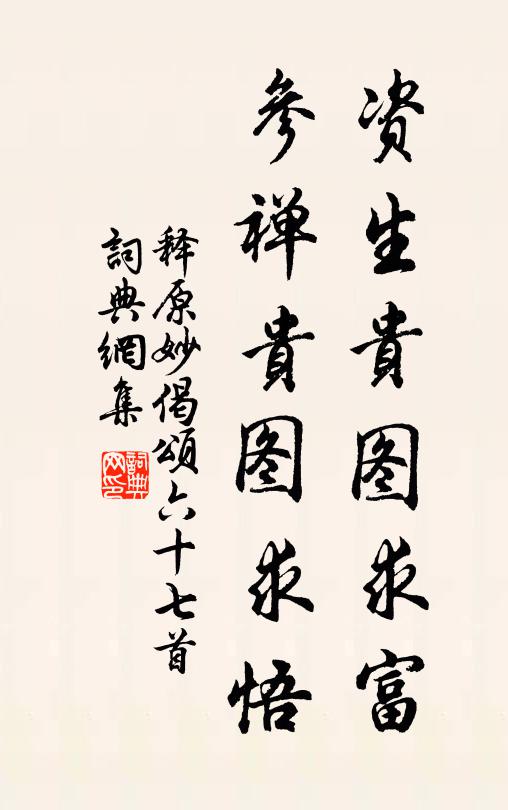 资生贵图求富
参禅贵图求悟
释原妙偈颂六十七首
詞典網集
詞典网印